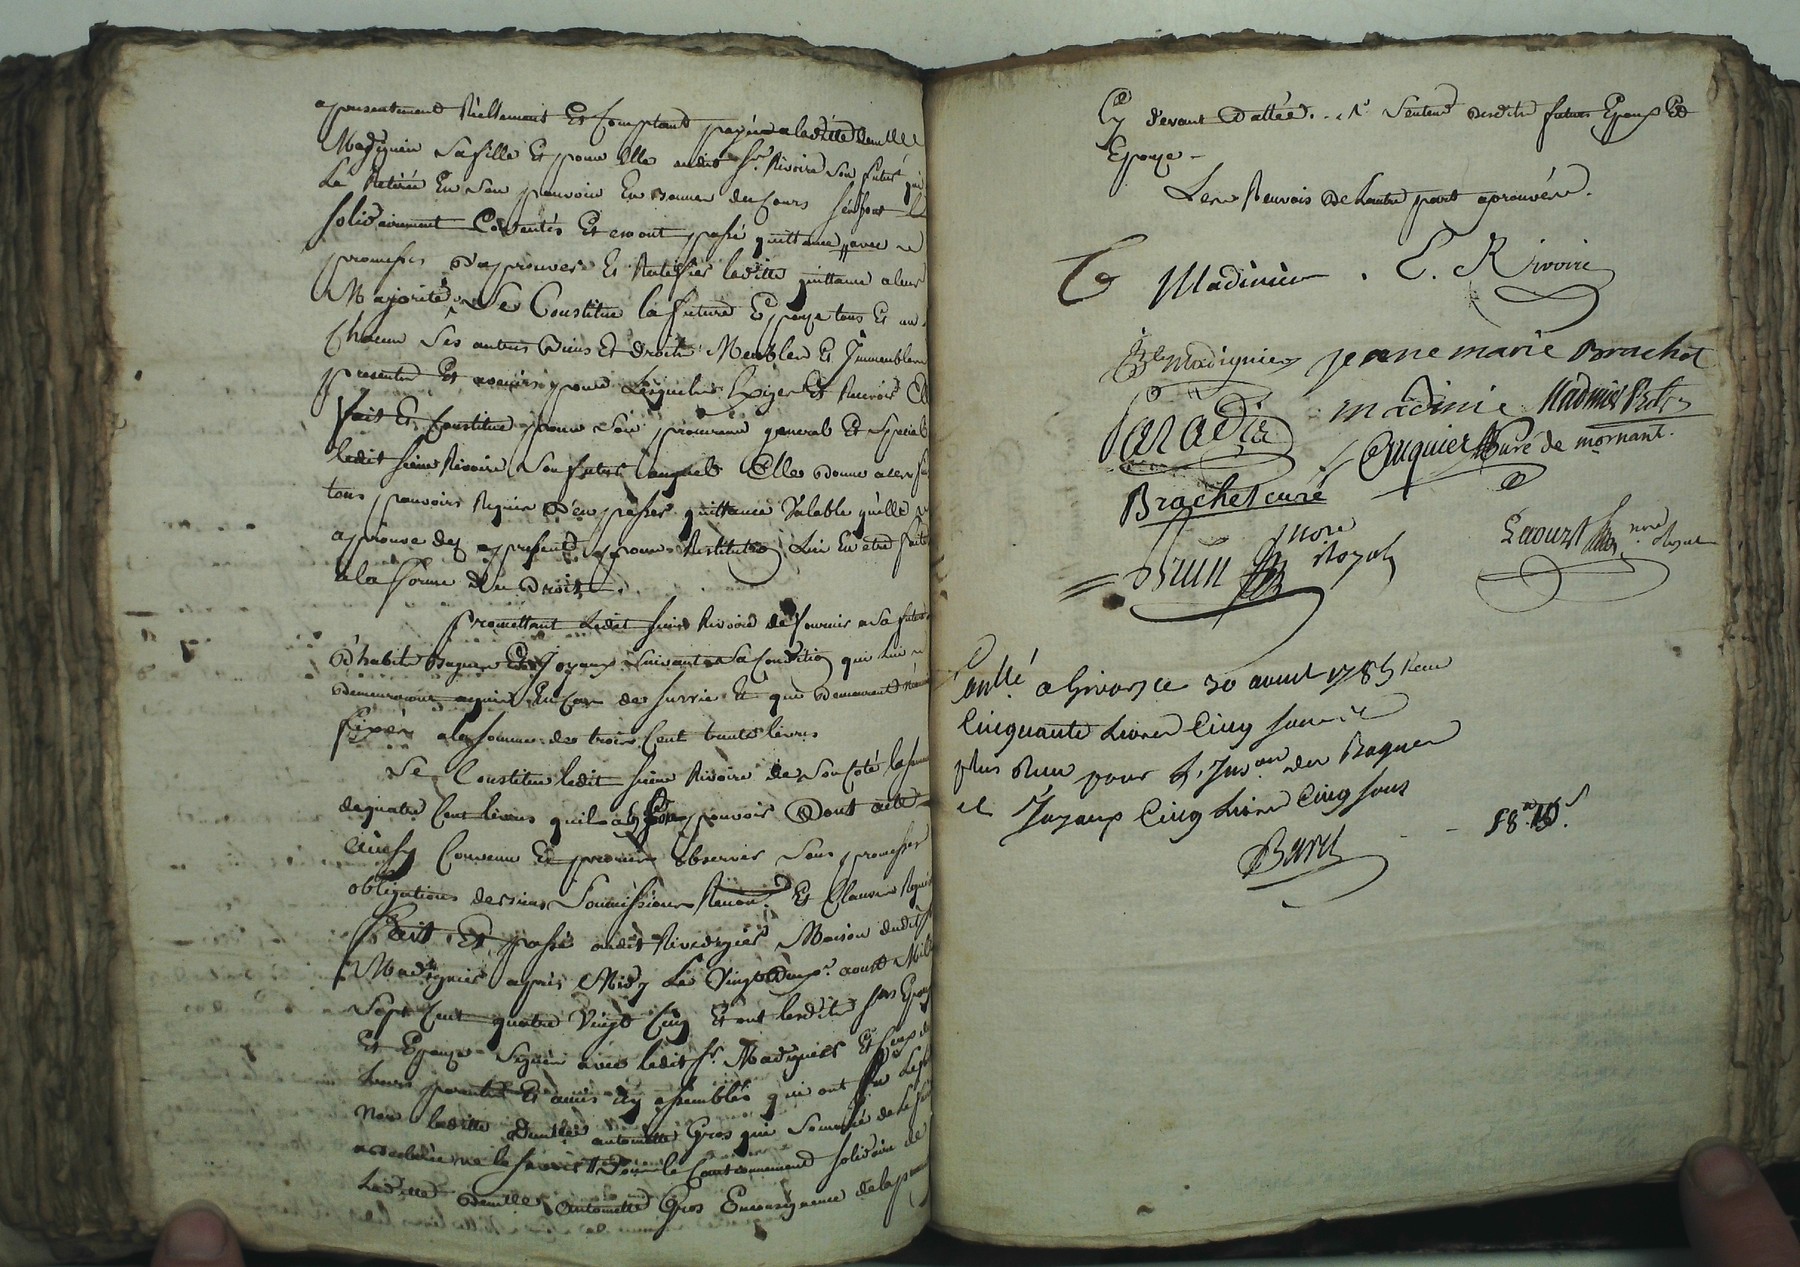 apresentement Réellement Et Comptant payée a ladite Demlle
Madignier Sa fille Et pour Elle audit Sr. Rivoire Son futur qui
La Retirée En Son pouvoir En Bonnes du Cours
solidairement Contentés Et en ont passé quittance avec
promesses d'aprouver Et Ratifier laditte quittance a leur
Majorité, Se Constitue la future Epouse tous Et un
Chacun Ses autres Biens Et droits Meubles Et Immeubles
presents Et avenirs pour Lesquels Exiger Et Recevoir Elle
fait Et Constitue pour Son procureur general Et Special
ledit sieur Rivoire Son futur auquel Elle donne
tous pouvoirs Requis d'en passer quittance Valable qu'elle
aprouve des apresent pour Restitution Lui En etre faite
a la forme du Droit.
promettant Ledit sieur Rivoire de fournir a Sa future
d'habits Bagues Et Joyaux Suivant Sa Condition qui Lui
demeureront aquis En Cas de Survie Et qui demeurent
fixés a la somme de trois Cent trente livres
Se Constitue ledit sieur Rivoire de Son Coté la somme
de quatre Cent livres qu'il a En Son pouvoir Dont acte
Ainsy Convenu Et promis observer Sous promesses
obligations de biens Soumissions Renon.on Et Clauses Requises
Fait Et passé audit Rivedegier Maison dudit Sr
Madignier après Midy Le Vingt deux aoust Mil
Sept Cent quatre Vingt Cinq Et ont lesdits Srs Epoux
Et Epouse Signé avec ledit Sr. Madignier Et Ceux de
Leurs parents Et amis Cy assemblés qui ont Su Le faire
Non laditte Demlle antoinette Gros qui Sommée de Le faire
a déclaré ne le Savoir // pour le Cautionnement solidaire de
Laditte demlle Antoinette Gros
Cy devant Dattée. Desdits futurs Epoux Et
Epouse -
Les Renvois de l'autre part aprouvés.
Madinier . C. Rivoire
Bte Madignier jeane marie Brachet
Paradis madinie Madinier
Cuquier Curé de mornant.
Brachet curé
Brun nore Royal
nore Royal
Conllé a Givors ce 30 aoust 1785 Reçu
Cinquante Livres Cinq sous
plus Reçu pour L'Insi.on des Bagues
et Joyaux Cinq Livres Cinq sous
Barel